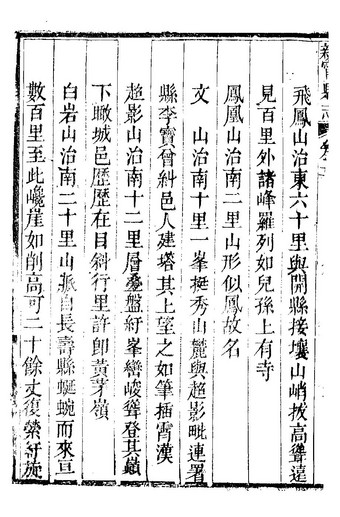 新寧縣志
飛鳳山治東六十里與開縣接壤山峭拔高聳遠
見百里外諸峰羅列如兒孫上有寺
鳳凰山治南二里山形似鳳故名
文　山治南十里一峯挺秀山麓與超影毗連署
縣李寶曾糾邑人建塔其上望之如筆插霄漢
超影山治南十二里層疊盤紆峯巒峻聳登其巔
下瞰城邑歷歷在目斜行里許卽黃茅嶺
白岩山治南二十里山派自長壽縣蜒蜿而來亘
數百里至此巉崖如削高可二十餘丈復縈紆旋